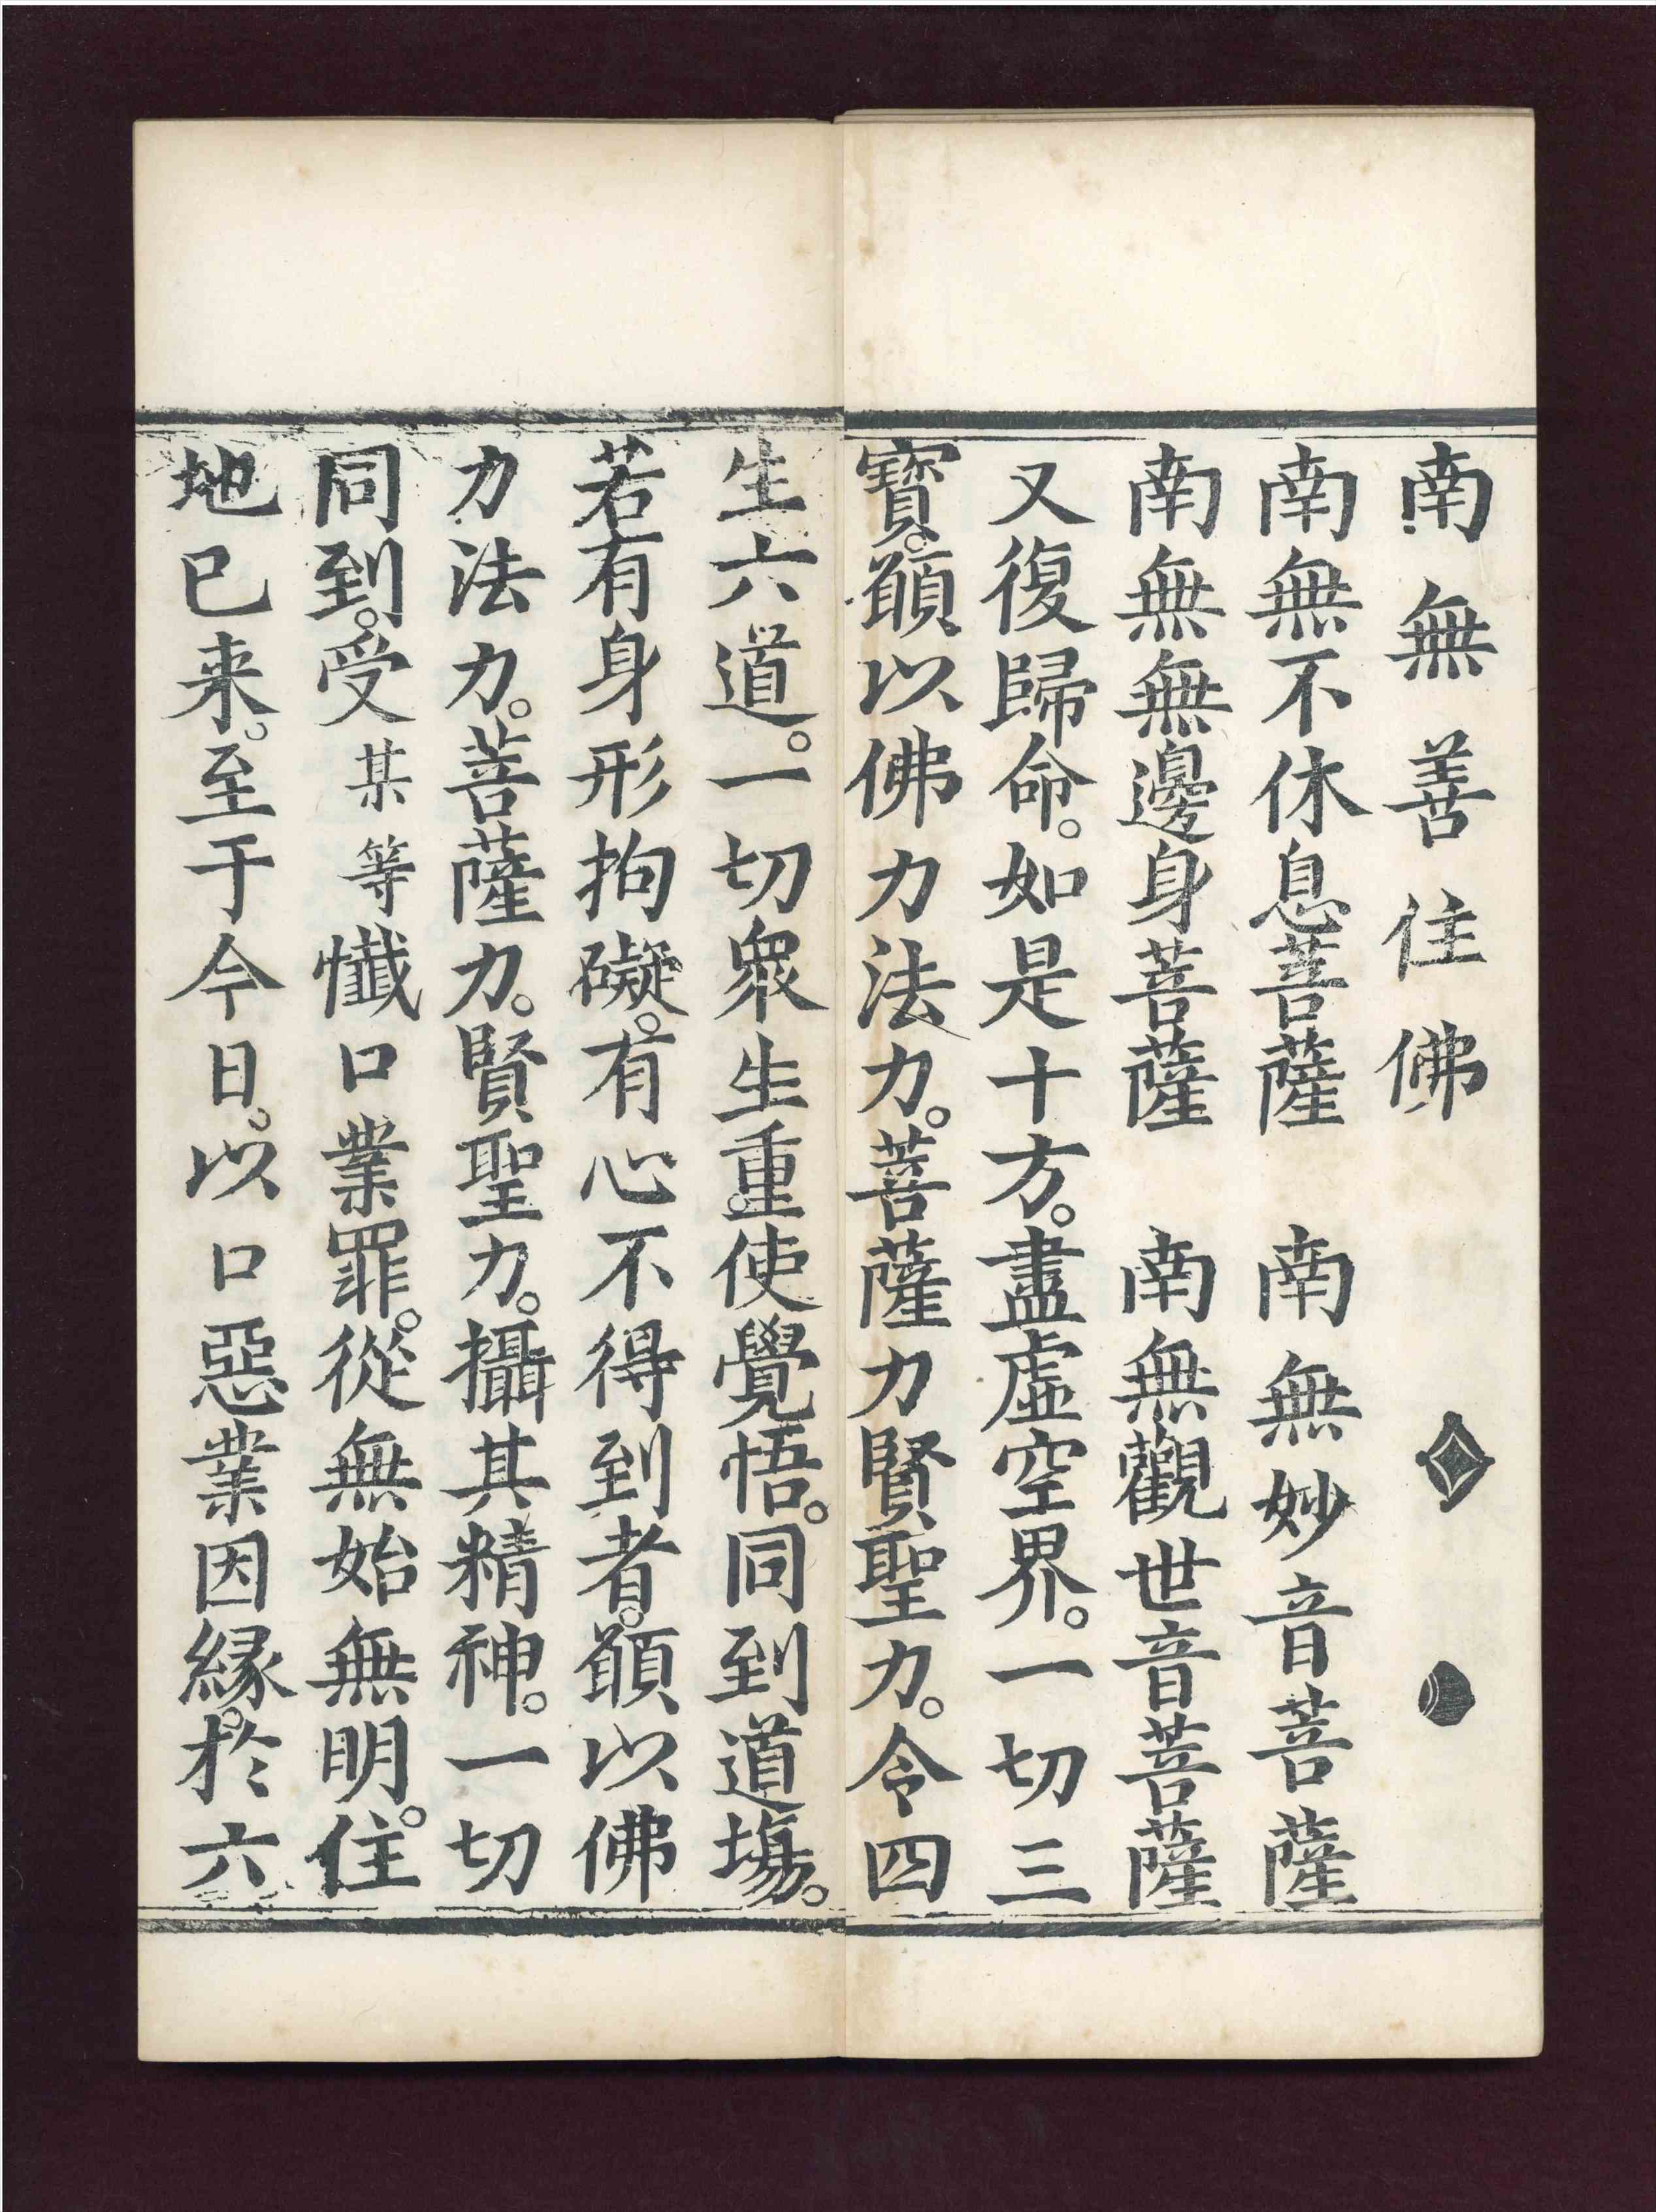 南無善住佛
南無不休息菩薩　南無妙音菩薩
南無無邊身菩薩　南無觀世音菩薩
又復歸命。如是十方。盡虛空界。一切三
寶。願以佛力法力。菩薩力賢聖力。令四
生六道。一切衆生重。使覺悟。同到道塲。
若有身形拘礙。有心不得到者。願以佛
力法力。菩薩力。賢聖力。攝其精神。一切
同到。受某等懺口業罪。從無始無明。住
地已来。至于今日。以口惡業因緣。於六